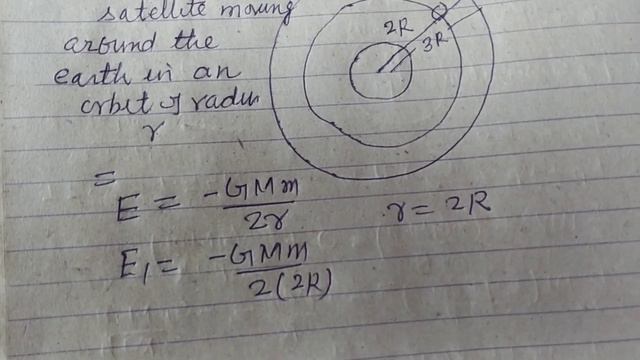 satellite moving
around the
earth in an
orbit of radius
r
2R
3R
=
E = -GMm/2r
r = 2R
E₁ = -GMm/2(2R)